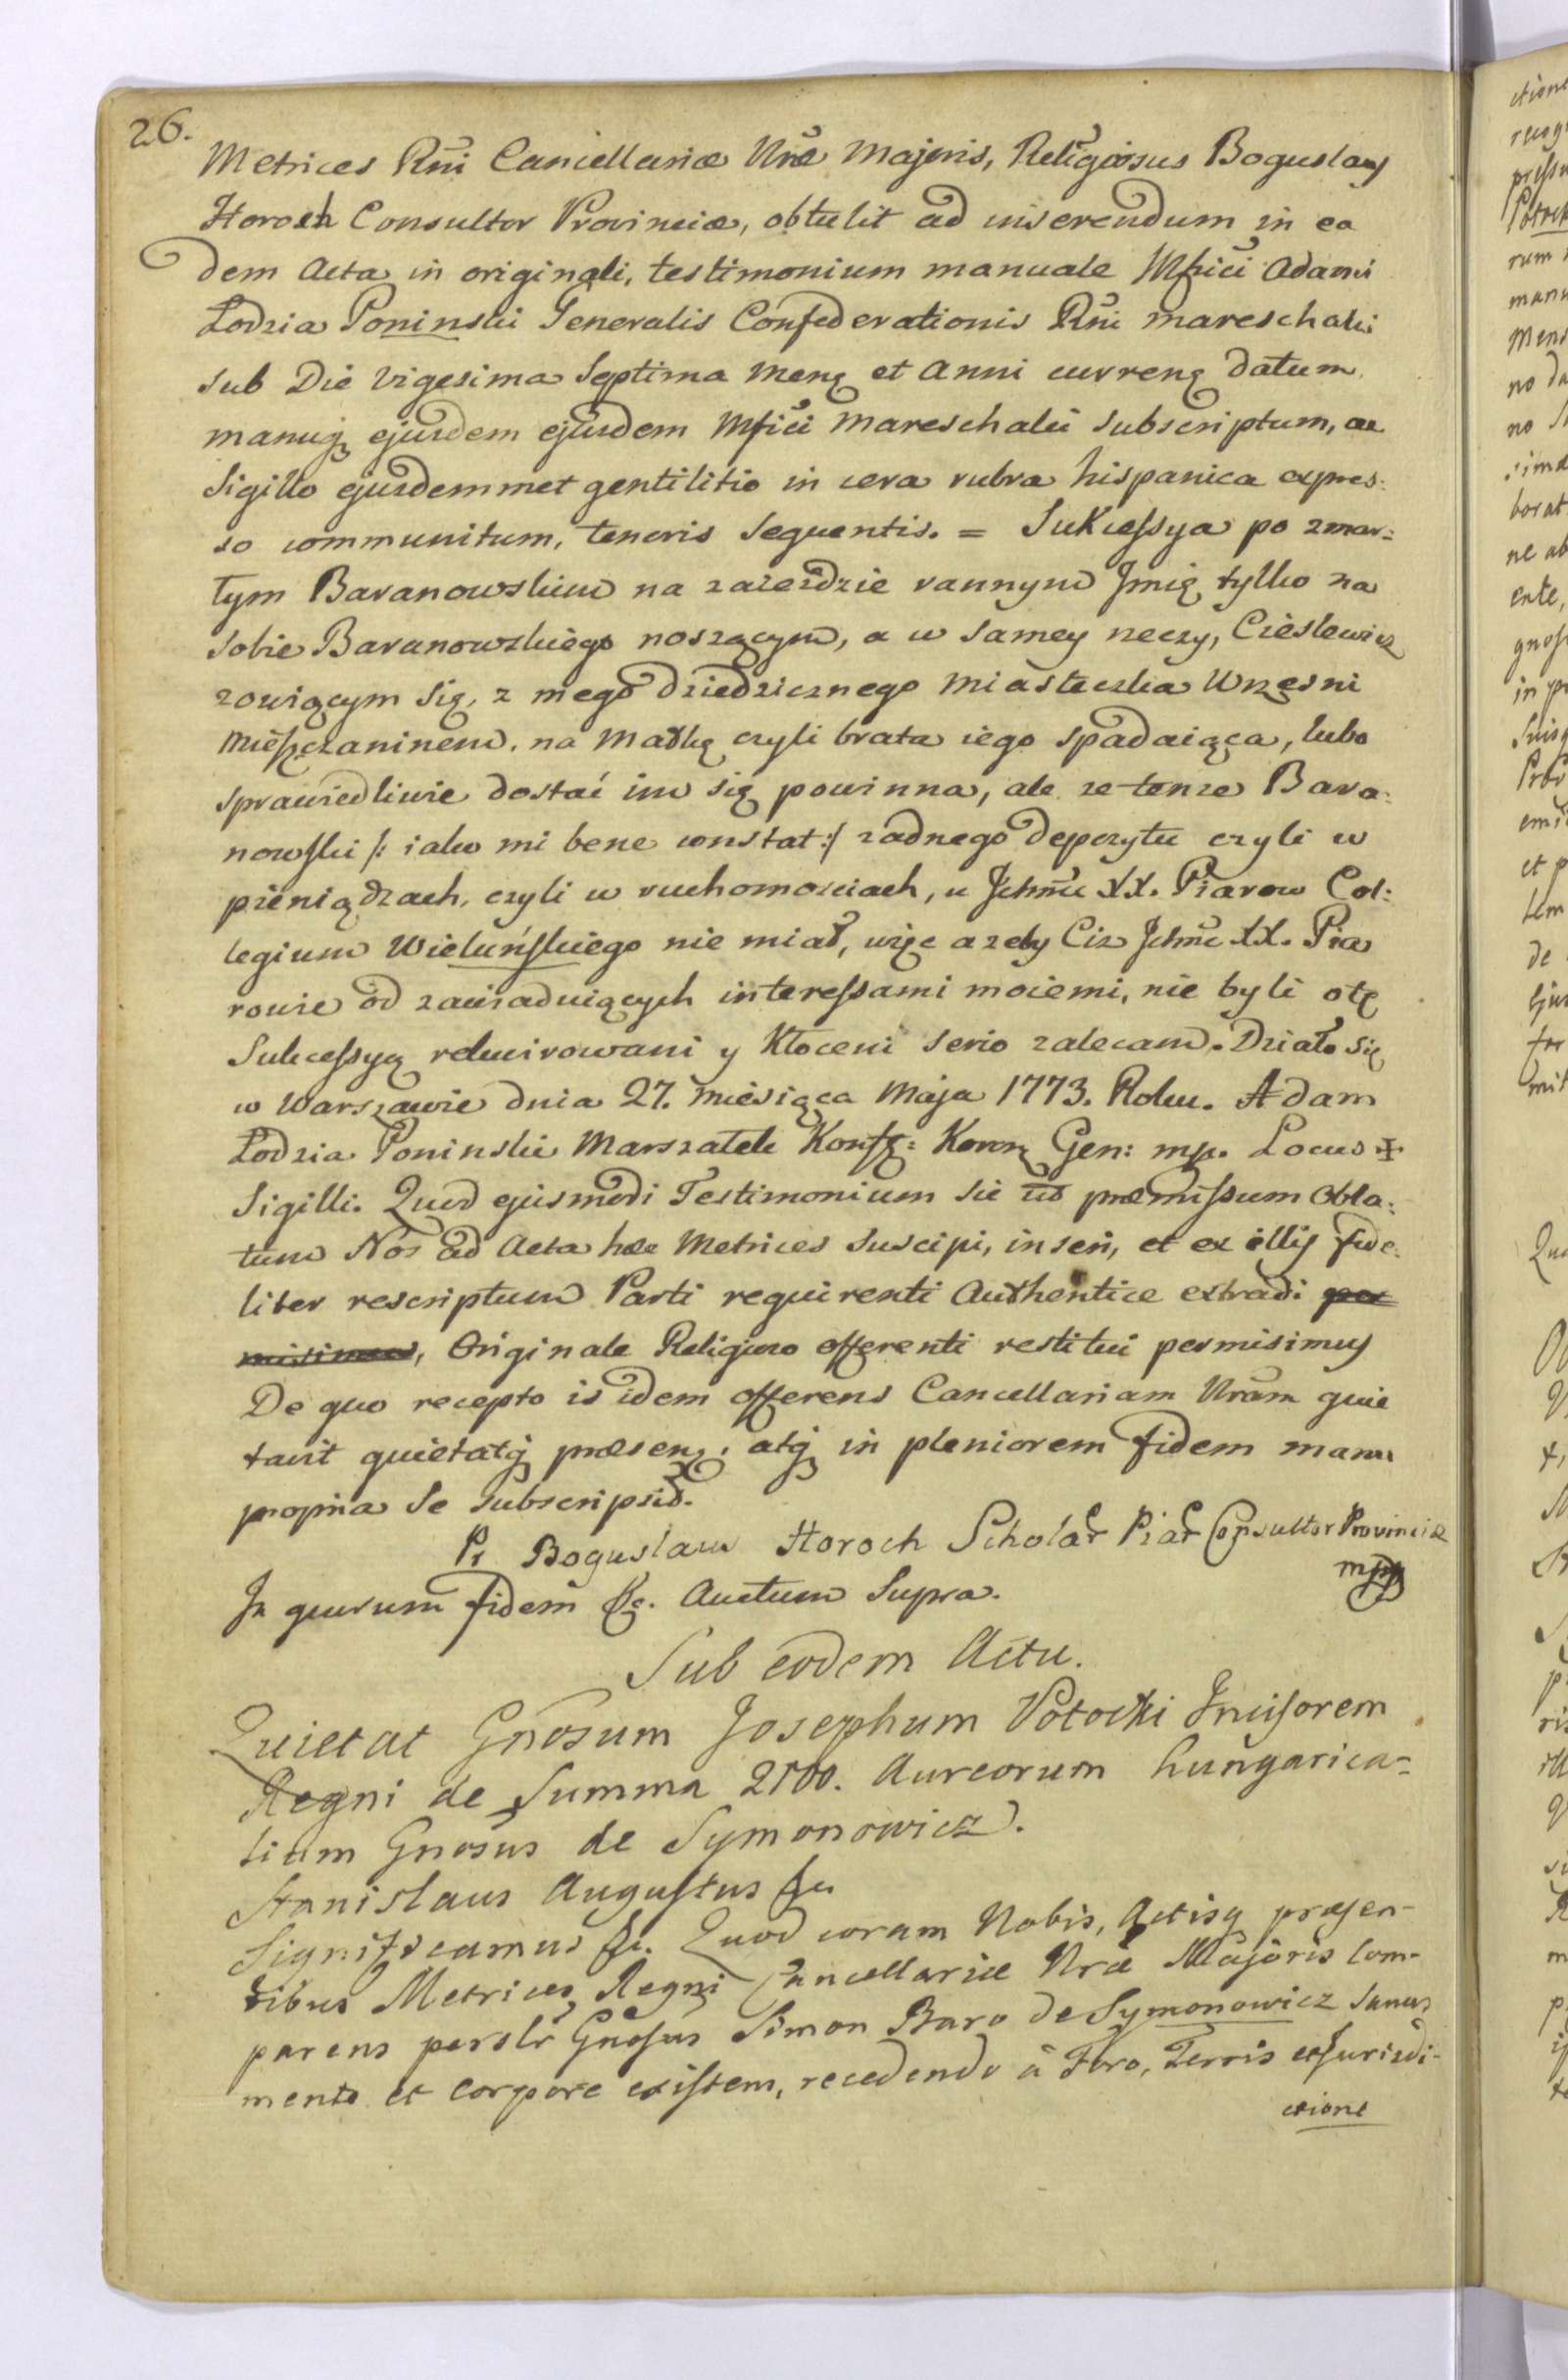 26.
Metrices Rñi Cancellariæ Nrẽ Majoris, Religiosus Boguslaus
Horoch Consultor Provinciæ, obtulit ad inserendum in ea
dem Acta in originali, testimonium manuale Mfici Adami
Łodzia Poninski Generalis Confederationis Rñi Mareschalci
sub Die vigesima Septima Mensę et Anni currenę datum
manuqȝ ejusdem ejusdem Mfici Mareschalci subscriptum, ac
Sigillo ejusdemmet gentilitio in cera rubra hispanica expres:
so communitum, tenoris sequentis. = Sukcessya po zmar:
łym Baranowskim na zaieździe rannym Jmię tylko na
sobie Baranowskiego noszącym, a w samey rzeczy, Cieslewicz
zowiącym się, z mego dziedzicznego Miasteczka Wrzesni
Mieszczaninem, na Matkę czyli brata iego spadaiąca, lubo
sprawiedliwie dostać im się powinna, ale że tenże Bara:
nowski /: iako mi bene constat :/ żadnego depozytu czyli w
pieniądzach, czyli w ruchomosciach, u Jchmc XX. Piarow Col:
legium Wieluńskiego nie miał, więc ażeby Ciż Jchmc XX. Pia
rowie od zawiaduiących interessami moiemi, nie byli otę
Sukcessyą rekwirowani y kłoceni serio zalecam. Działo się
w Warszawie dnia 27. Miesiąca Maja 1773. Roku. Adam
Łodzia Poninski Marszałek Konfę: Koronę Gen: mp. Locus ✠
Sigilli. Quod ejusmodi Testimonium sic ut præmissum Obla:
tum Nos ad Acta hæc Metrices suscipi, inseri, et ex illis fide:
liter rescriptum Parti requirenti Authentice extradi per
misimus, Originale Religioso offerenti restitui permisimus
De quo recepto is idem offerens Cancellariam Nram quie
tavit quietatqȝ præsenę, atqȝ in pleniorem fidem manu
propria se subscripsit.
Pr Boguslaus Horoch Scholar Piar Consultor Provinciæ
mpp
In quorum fidem &c. Auctum Supra.
Sub eodem Actu.
Quietat Gnosum Josephum Potocki Incisorem
Regni de Summa 2500. Aureorum hungarica=
lium Gnosus de Symonowicz.
Stanislaus Augustus &c.
Significamus &c. Quod coram Nobis, Actisq præsen-
tibus Metrices Regni Cancellariæ Nræ Majoris Com-
parens persłr Gnosus Simon Baro de Symonowicz Sanus
mente et Corpore existem, recedendo à Foro, Terris et Jurisdi-
ctione